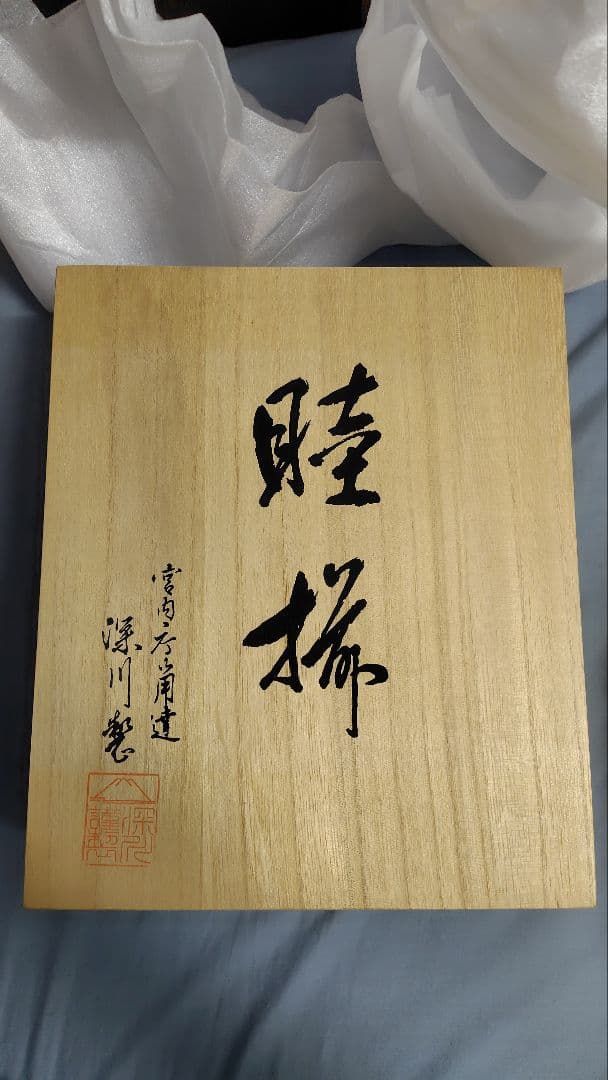 睦揃
宮内庁御用達
深川製
深川謹製